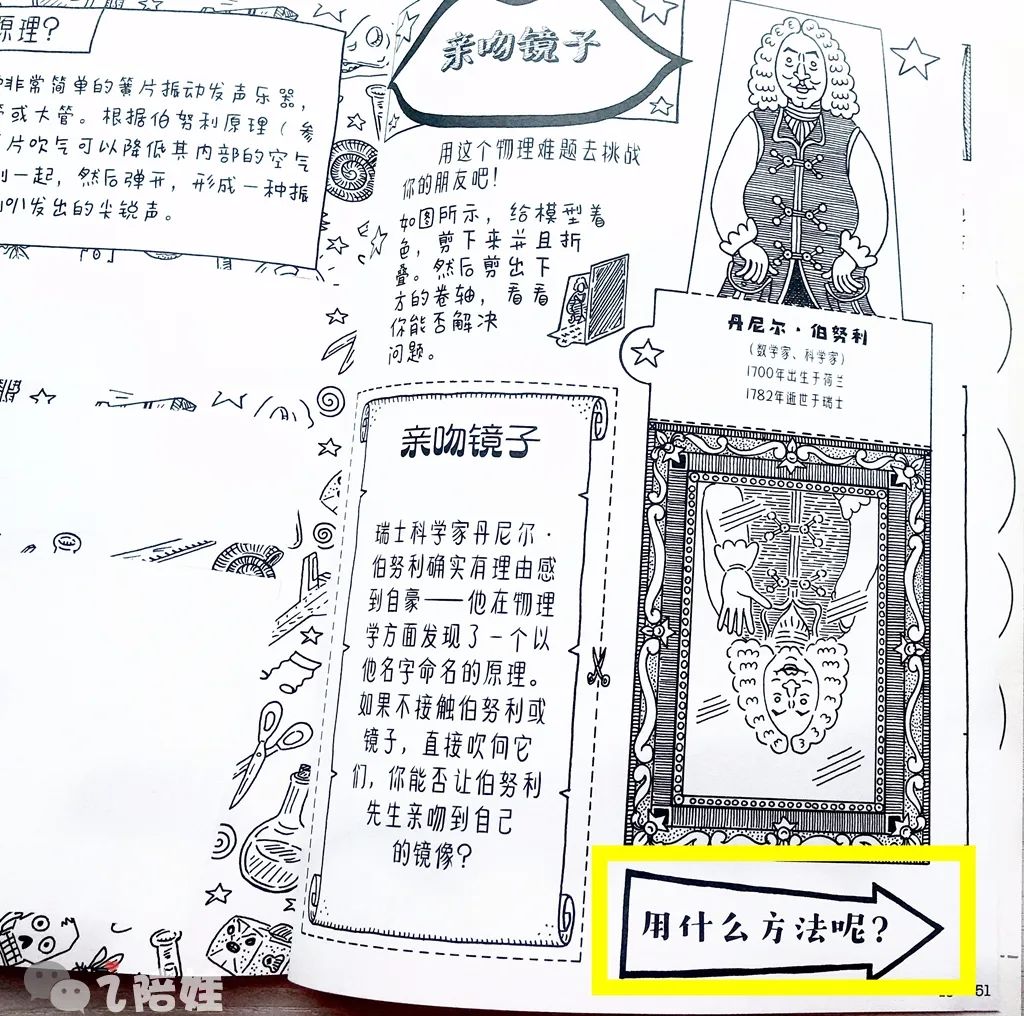 原理？
非常简单的簧片振动发声乐器，
或大管。根据伯努利原理（参
片吹气可以降低其内部的空气
到一起，然后弹开，形成一种振
叭发出的尖锐声。
亲吻镜子
用这个物理难题去挑战
你的朋友吧！
如图所示，给模型着
色，剪下来并且折
叠。然后剪出下
方的卷轴，看看
你能否解决
问题。
丹尼尔·伯努利
（数学家、科学家）
1700年出生于荷兰
1782年逝世于瑞士
亲吻镜子
瑞士科学家丹尼尔·
伯努利确实有理由感
到自豪——他在物理
学方面发现了一个以
他名字命名的原理。
如果不接触伯努利或
镜子，直接吹向它
们，你能否让伯努利
先生亲吻到自己
的镜像？
用什么方法呢？
51
乙陪娃